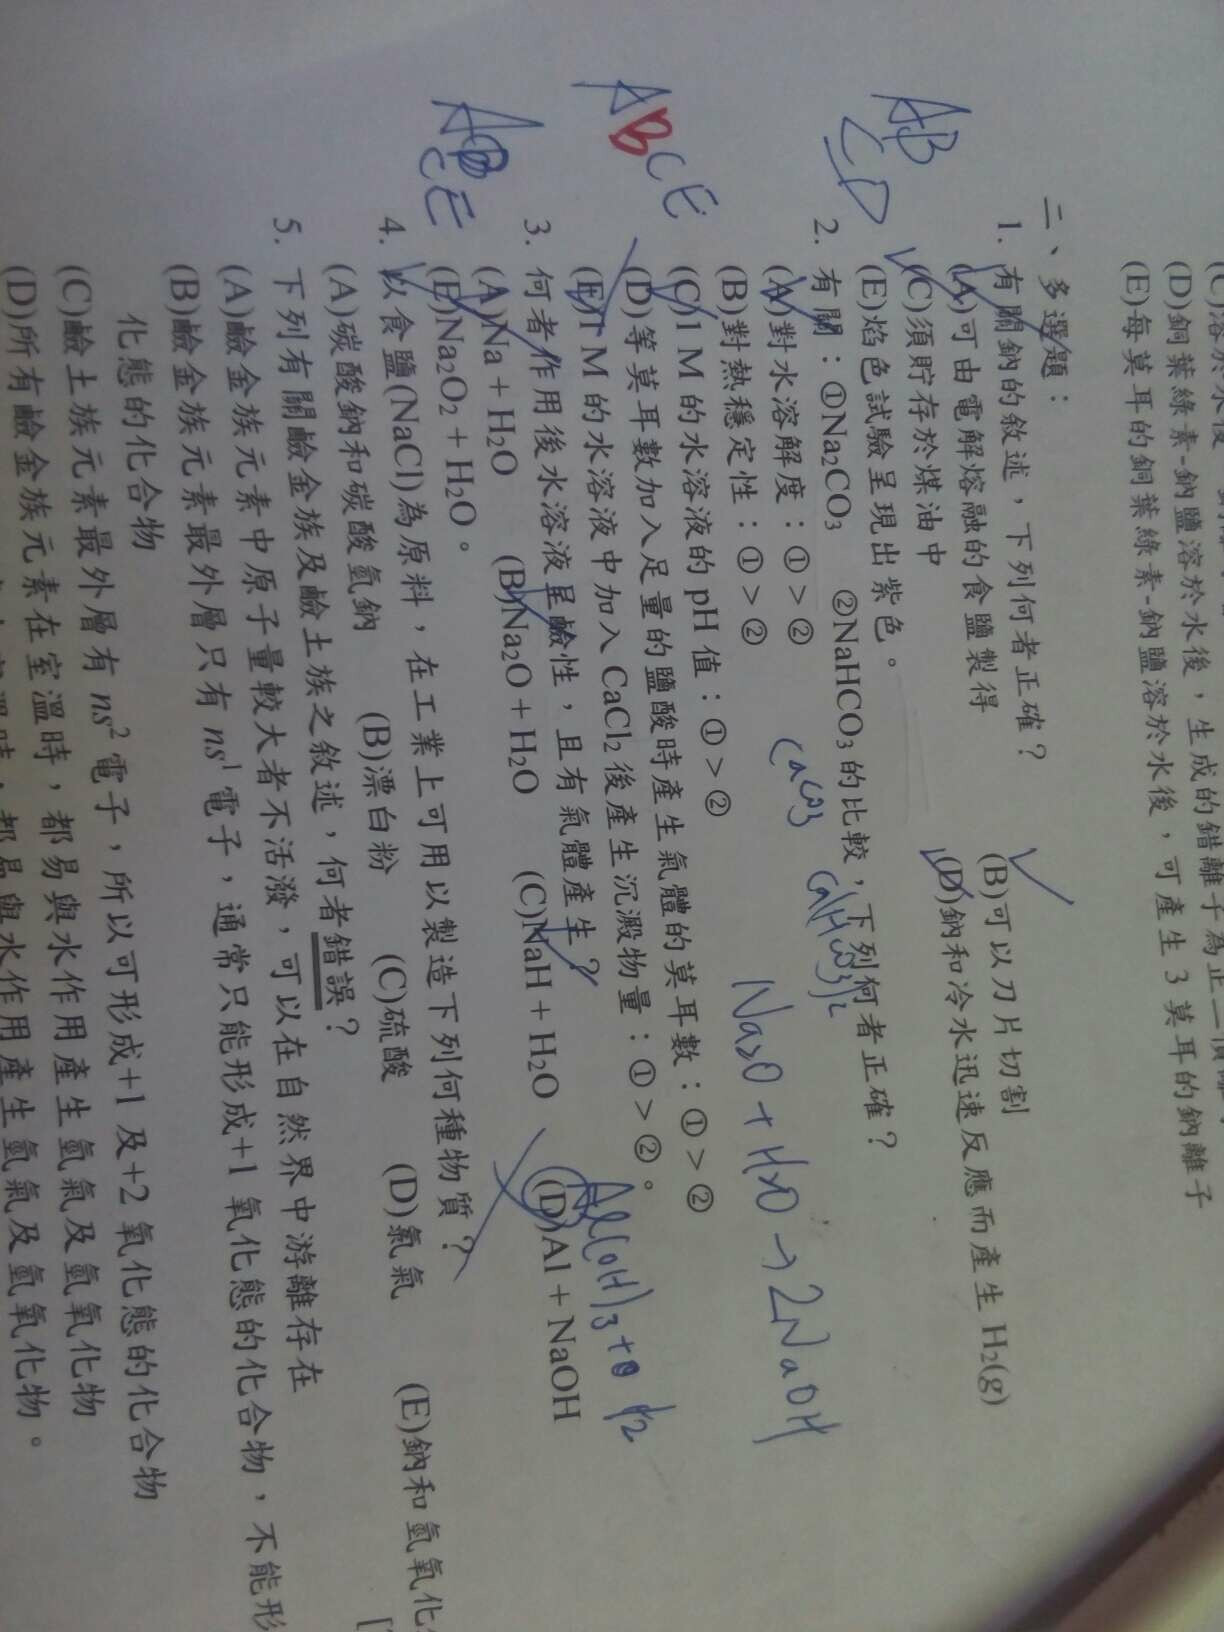 (D)銅葉綠素-鈉鹽溶於水後，生成的錯離子為正二價離
(E)每莫耳的銅葉綠素-鈉鹽溶於水後，可產生 3 莫耳的鈉離子
二、多選題：
AB
CD
1. 有關鈉的敘述，下列何者正確？
(A)可由電解熔融的食鹽製得 (B)可以刀片切割
(C)須貯存於煤油中 (D)鈉和冷水迅速反應而產生 H2(g)
(E)焰色試驗呈現出紫色。
ABCE
2. 有關：①Na2CO3 ②NaHCO3 的比較，下列何者正確？
(A)對水溶解度：①>②
(B)對熱穩定性：①>②
CaCO3
Ca(HCO3)2
Na2O + H2O → 2NaOH
(C)1 M 的水溶液的 pH 值：①>②
(D)等莫耳數加入足量的鹽酸時產生氣體的莫耳數：①>②
(E)1 M 的水溶液中加入 CaCl2 後產生沉澱物量：①>②。
Al(OH)3 + H2
ABCE
3. 何者作用後水溶液呈鹼性，且有氣體產生？
(A)Na + H2O (B)Na2O + H2O (C)NaH + H2O (D)Al + NaOH
(E)Na2O2 + H2O。
4. 以食鹽(NaCl)為原料，在工業上可用以製造下列何種物質？
(A)碳酸鈉和碳酸氫鈉 (B)漂白粉 (C)硫酸 (D)氯氣 (E)鈉和氫氧化
5. 下列有關鹼金族及鹼土族之敘述，何者錯誤？
(A)鹼金族元素中原子量較大者不活潑，可以在自然界中游離存在
(B)鹼金族元素最外層只有 ns1 電子，通常只能形成+1 氧化態的化合物，不能形
化態的化合物
(C)鹼土族元素最外層有 ns2 電子，所以可形成+1 及+2 氧化態的化合物
(D)所有鹼金族元素在室溫時，都易與水作用產生氫氣及氫氧化物
都易與水作用產生氫氣及氫氧化物。